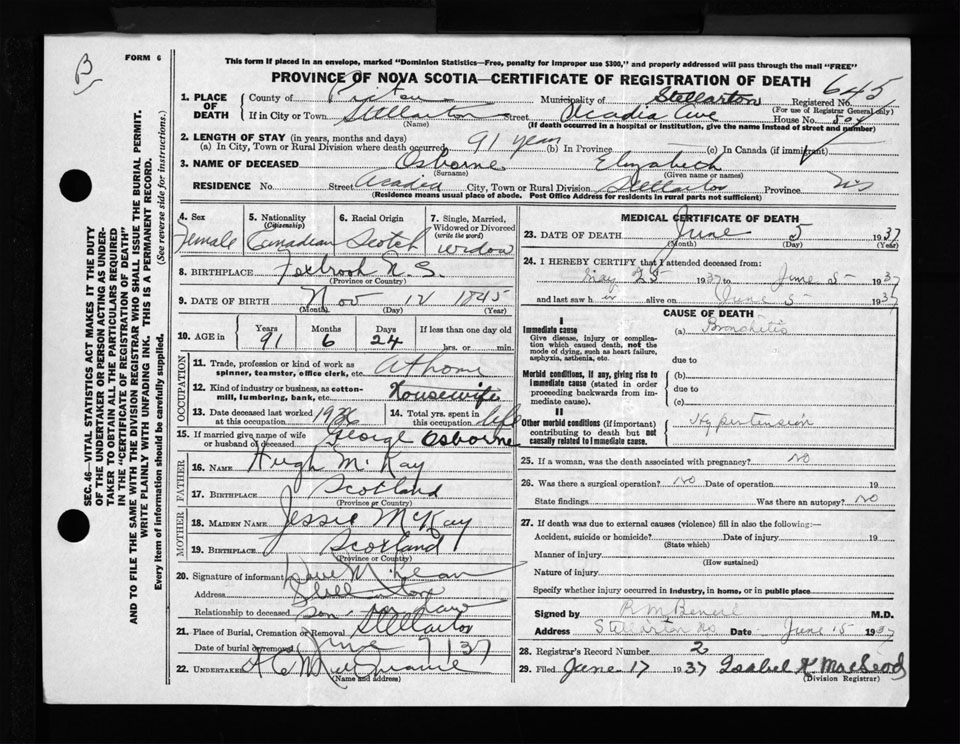 B
FORM 6
SEC. 46— VITAL STATISTICS ACT MAKES IT THE DUTY
OF THE UNDERTAKER OR PERSON ACTING AS UNDER-
TAKER TO OBTAIN ALL THE PARTICULARS REQUIRED
IN THE "CERTIFICATE OF REGISTRATION OF DEATH"
AND TO FILE THE SAME WITH THE DIVISION REGISTRAR WHO SHALL ISSUE THE BURIAL PERMIT.
WRITE PLAINLY WITH UNFADING INK. THIS IS A PERMANENT RECORD.
Every item of information should be carefully supplied. (See reverse side for instructions.)
This form if placed in an envelope, marked "Dominion Statistics—Free, penalty for improper use $300," and properly addressed will pass through the mail "FREE"
PROVINCE OF NOVA SCOTIA—CERTIFICATE OF REGISTRATION OF DEATH
645
1. PLACE OF DEATH County of Pictou Municipality of Stellarton Registered No.
(For use of Registrar General only)
If in City or Town Stellarton Street Acadia Ave House No. 504
(Name) (If death occurred in a hospital or institution, give the name instead of street and number)
2. LENGTH OF STAY (in years, months and days)
(a) In City, Town or Rural Division where death occurred 91 years (b) In Province (c) In Canada (if immigrant)
3. NAME OF DECEASED Osborne Elizabeth
(Surname) (Given name or names)
RESIDENCE No. Street Acadia City, Town or Rural Division Stellarton Province NS
(Residence means usual place of abode. Post Office Address for residents in rural parts not sufficient)
4. Sex 5. Nationality (Citizenship) 6. Racial Origin 7. Single, Married, Widowed or Divorced (write the word)
Female Canadian Scotch Widow
8. BIRTHPLACE Foxbrook N.S.
(Province or Country)
9. DATE OF BIRTH Nov 12 1845
(Month) (Day) (Year)
10. AGE in Years Months Days If less than one day old
91 6 24 hrs. or min.
OCCUPATION
11. Trade, profession or kind of work as spinner, teamster, office clerk, etc. at home
12. Kind of industry or business, as cotton-mill, lumbering, bank, etc. Housewife
13. Date deceased last worked at this occupation 1936 14. Total yrs. spent in this occupation life
15. If married give name of wife or husband of deceased George Osborne
FATHER
16. NAME Hugh McKay
17. BIRTHPLACE Scotland
(Province or Country)
MOTHER
18. MAIDEN NAME Jessie McKay
19. BIRTHPLACE Scotland
(Province or Country)
20. Signature of informant
Address Stellarton
Relationship to deceased son in law
21. Place of Burial, Cremation or Removal Stellarton
Date of burial or removal June 7 / 37
22. UNDERTAKER
(Name and address)
MEDICAL CERTIFICATE OF DEATH
23. DATE OF DEATH June 5 1937
(Month) (Day) (Year)
24. I HEREBY CERTIFY that I attended deceased from:
May 25 1937 to June 5 1937
and last saw h er alive on June 5 1937
CAUSE OF DEATH
I
Immediate cause (a) Bronchitis
Give disease, injury or complication which caused death, not the mode of dying, such as heart failure, asphyxia, asthenia, etc.
due to
Morbid conditions, if any, giving rise to immediate cause (stated in order proceeding backwards from immediate cause). (b)
due to
(c)
II
Other morbid conditions (if important) contributing to death but not causally related to immediate cause. Hypertension
25. If a woman, was the death associated with pregnancy? No
26. Was there a surgical operation? No Date of operation 19
State findings Was there an autopsy? No
27. If death was due to external causes (violence) fill in also the following:—
Accident, suicide or homicide? Date of injury 19
(State which)
Manner of injury
(How sustained)
Nature of injury
Specify whether injury occurred in industry, in home, or in public place
Signed by M.D.
Address Stellarton NS Date June 15 1937
28. Registrar's Record Number 2
29. Filed June 17 1937 Isabel K MacLeod
(Division Registrar)